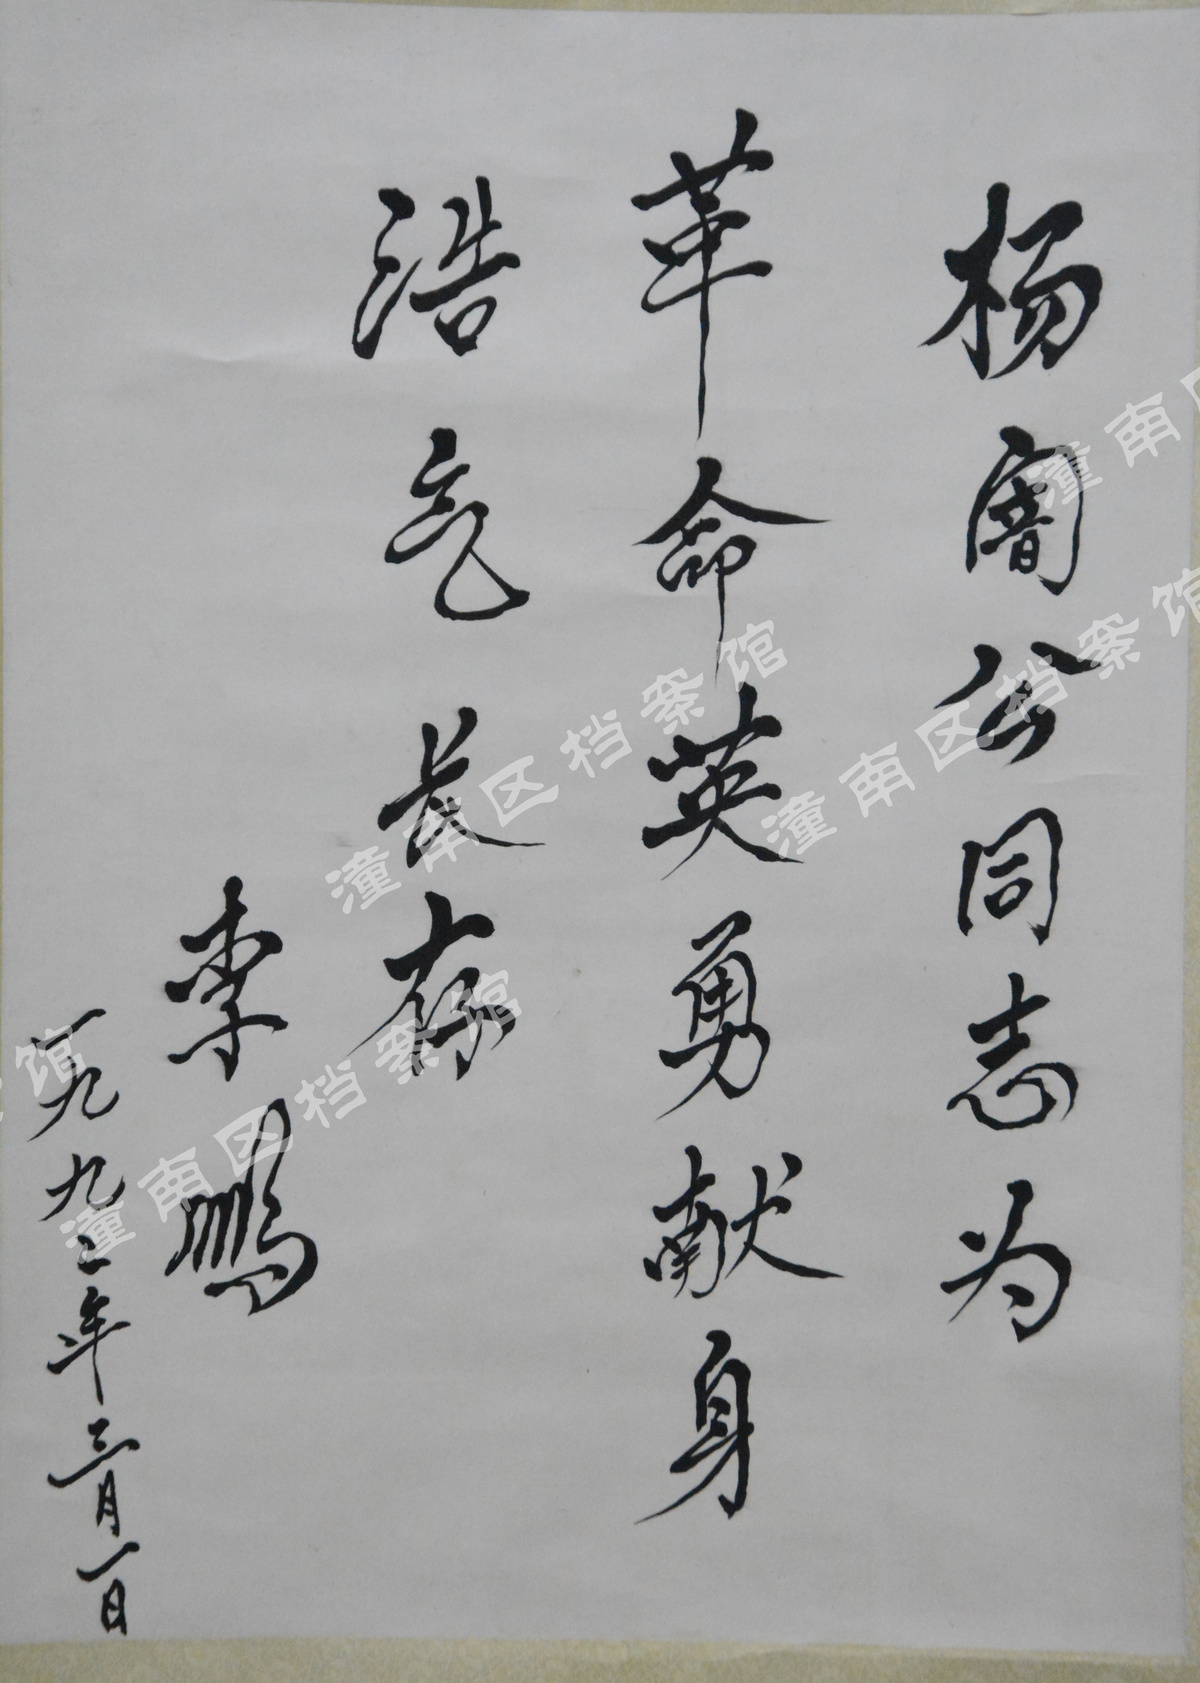 杨闇公同志为
革命英勇献身
浩气长存
李鹏
一九九二年三月一日
潼南区档案馆
潼南区档案馆
潼南区档案馆
潼南区
案馆